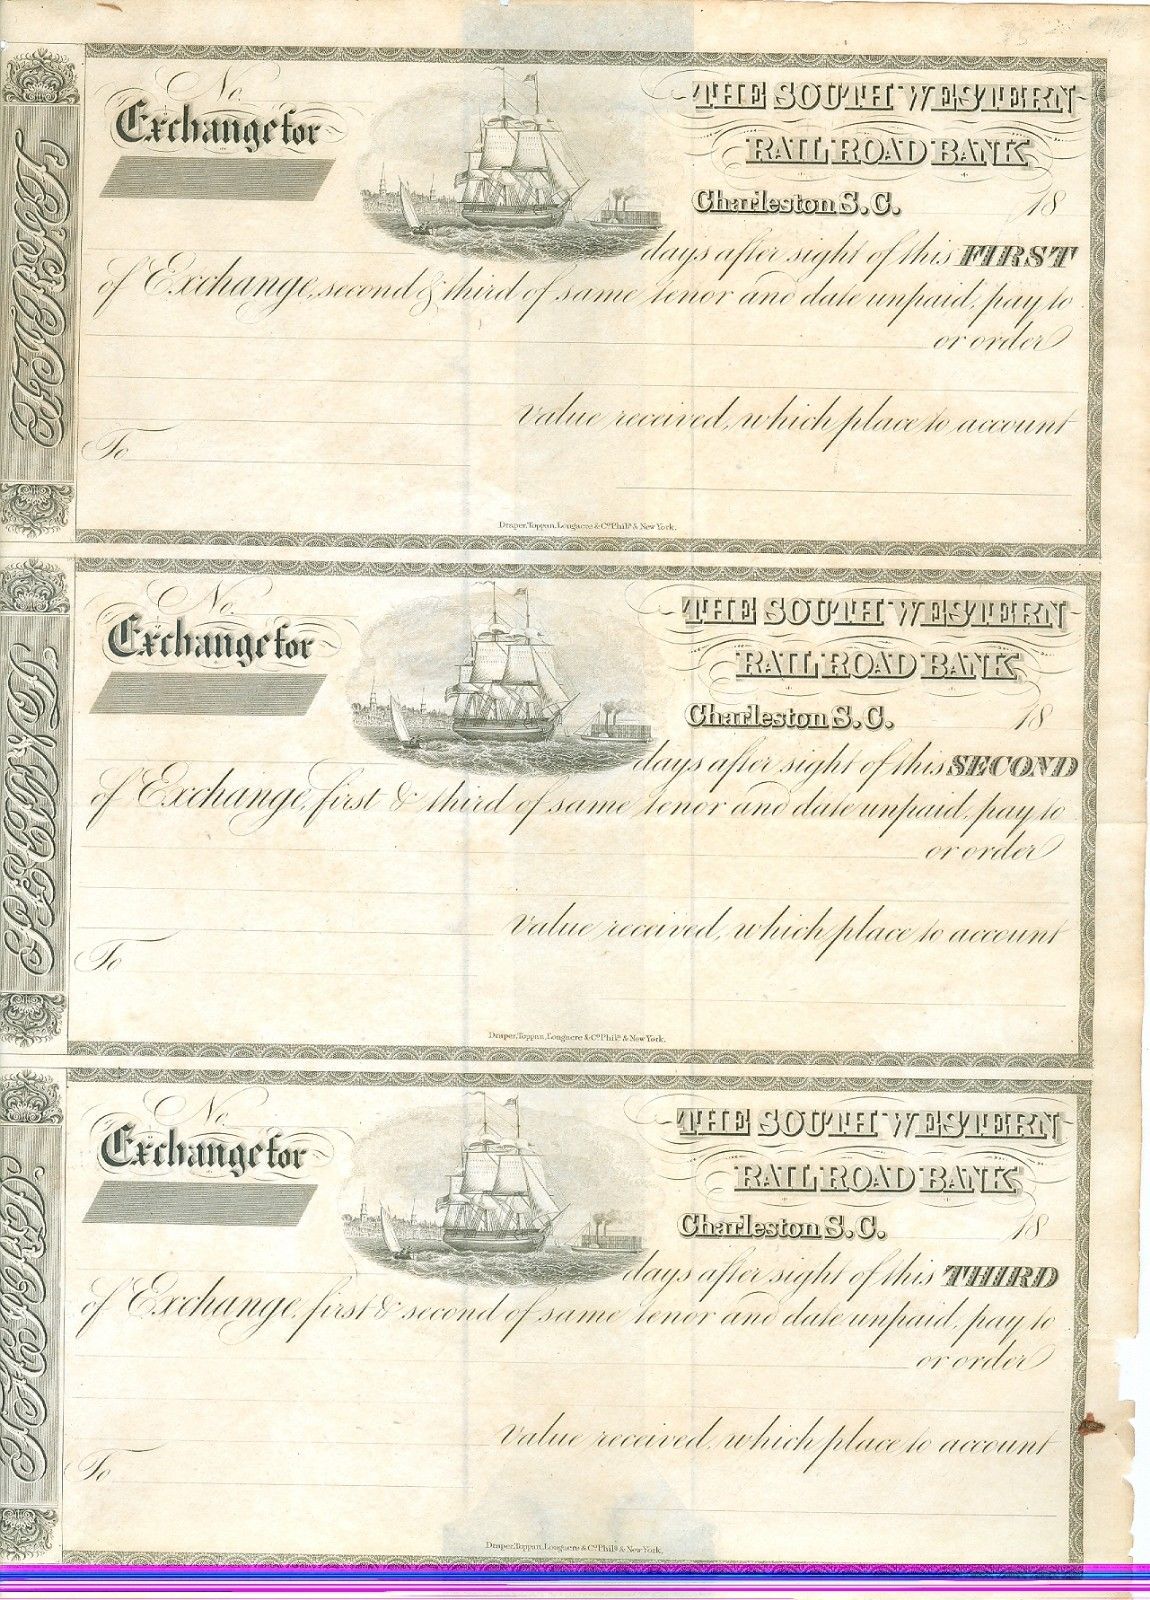 No.
Exchange for
THE SOUTH WESTERN
RAIL ROAD BANK
Charleston S.C. 18
days after sight of this FIRST
of Exchange, second & third of same tenor and date unpaid, pay to
or order
value received, which place to account
To
Draper, Toppan, Longacre & Co. Phila. & New York.
No.
Exchange for
THE SOUTH WESTERN
RAIL ROAD BANK
Charleston S.C. 18
days after sight of this SECOND
of Exchange, first & third of same tenor and date unpaid, pay to
or order
value received, which place to account
To
Draper, Toppan, Longacre & Co. Phila. & New York.
No.
Exchange for
THE SOUTH WESTERN
RAIL ROAD BANK
Charleston S.C. 18
days after sight of this THIRD
of Exchange, first & second of same tenor and date unpaid, pay to
or order
value received, which place to account
To
Draper, Toppan, Longacre & Co. Phila. & New York.